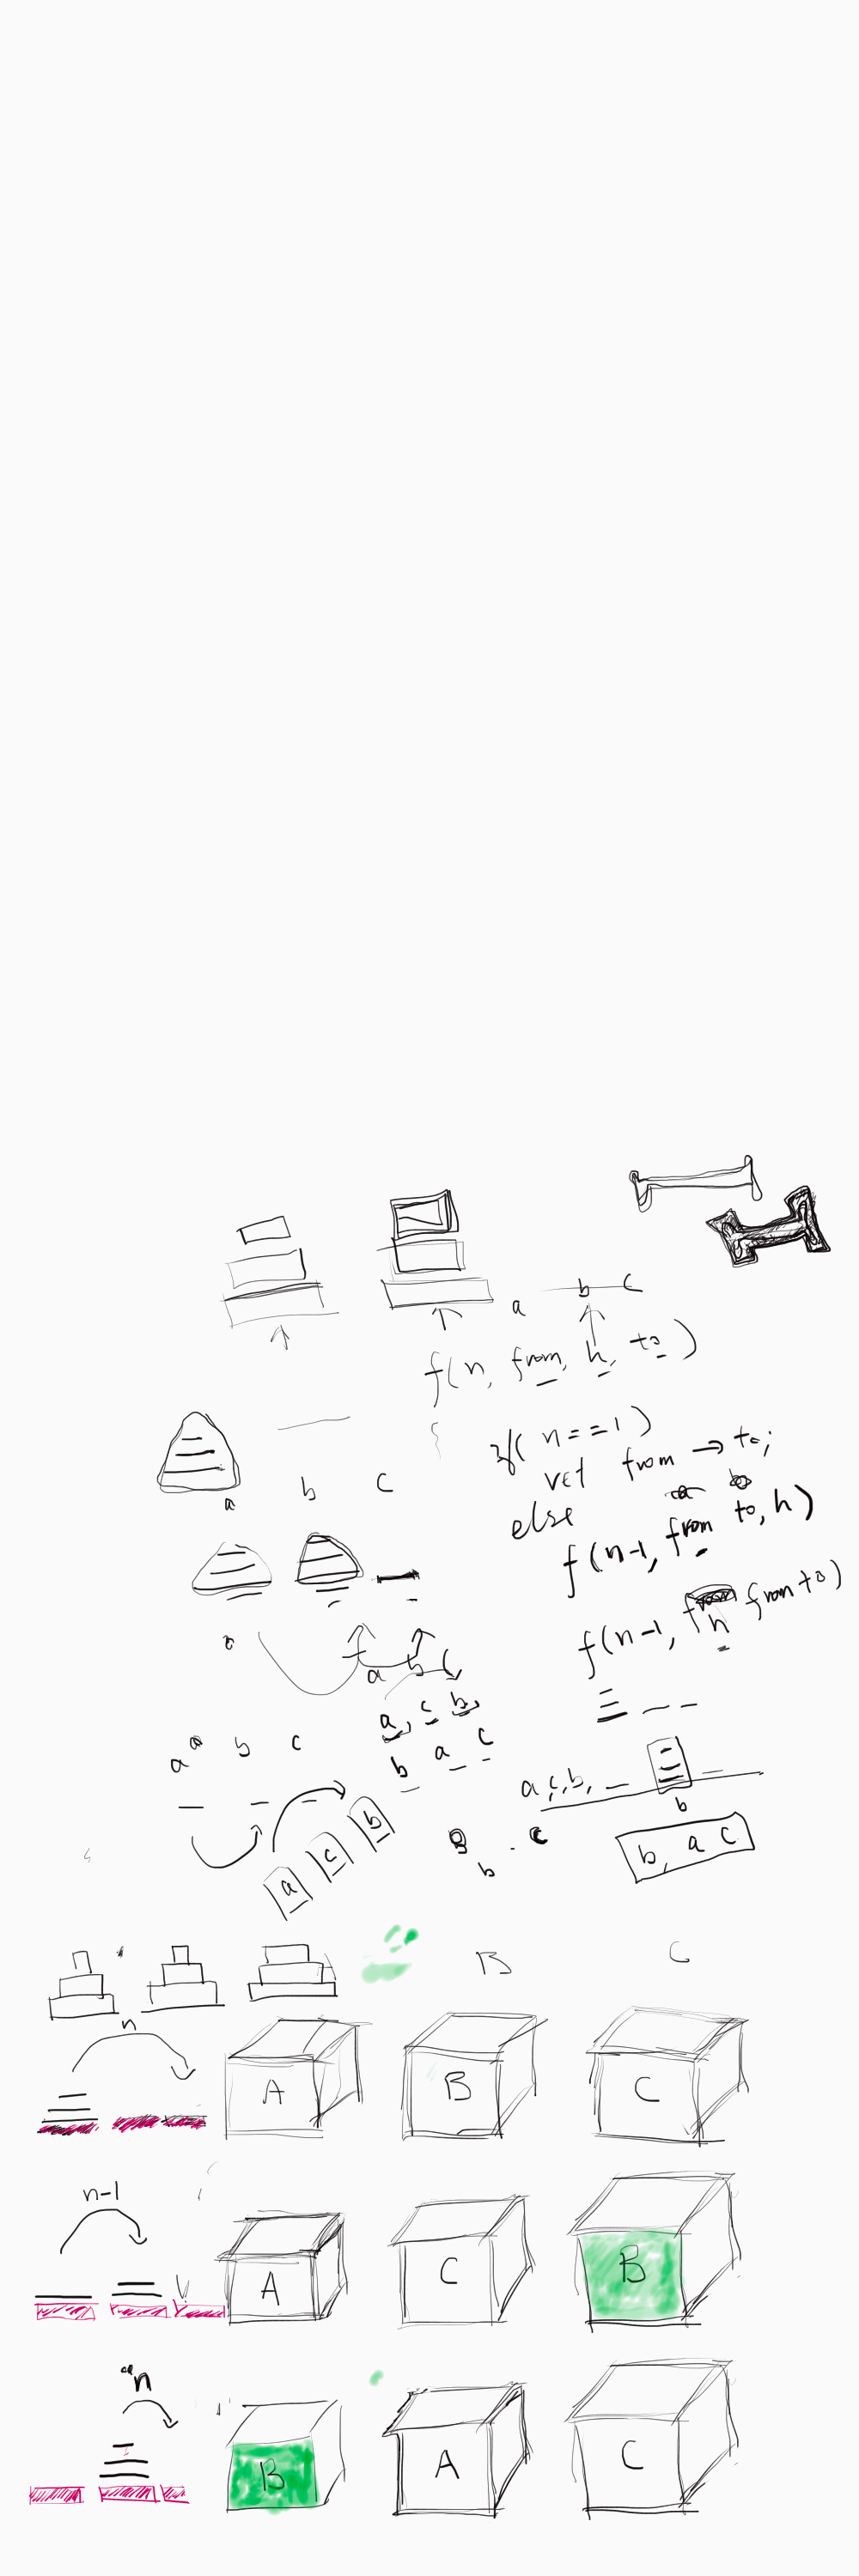 a b c
f(n, from, h, to)
if( n==1)
ret from → to;
a b c
else
f(n-1, from to, h)
f(n-1, h from to)
a b c
a, c b,
a b c
b a c
a,c,b,
b
a c b
b c
b, a c
B C
n
A B C
n-1
A C B
n
B A C